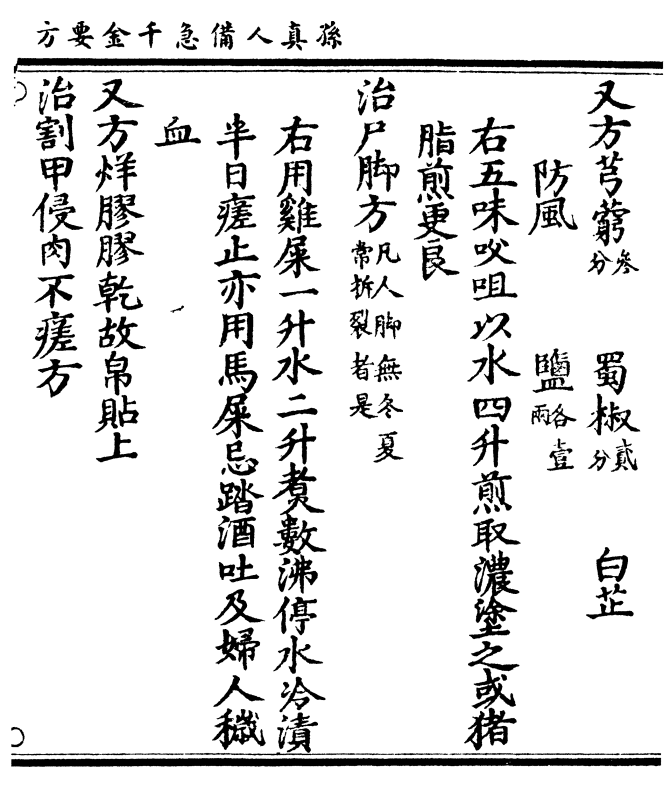 孫真人備急千金要方
又方芎藭叁分 蜀椒貳分 白芷
防風 鹽各壹兩
右五味㕮咀以水四升煎取濃塗之或猪
脂煎更良
治尸脚方凡人脚無冬夏常拆裂者是
右用雞屎一升水二升煑數沸停水冷漬
半日瘥止亦用馬屎忌踏酒吐及婦人穢
血
又方烊膠膠乾故帛貼上
治割甲侵肉不瘥方